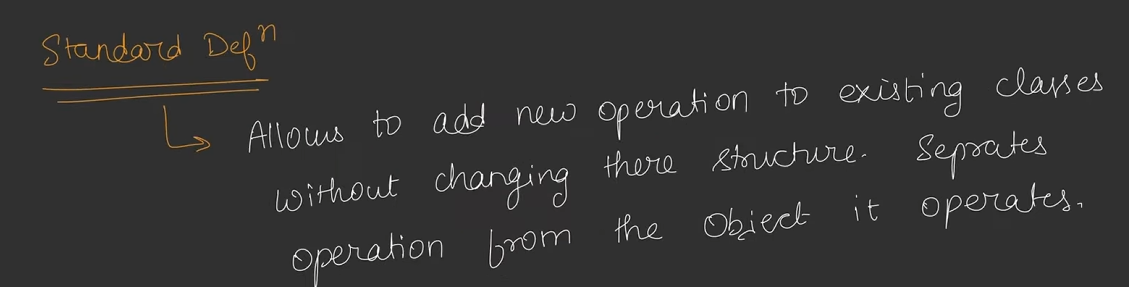 Standard Defⁿ
Allows to add new operation to existing classes
without changing there structure. Seprates
operation from the Object it operates.